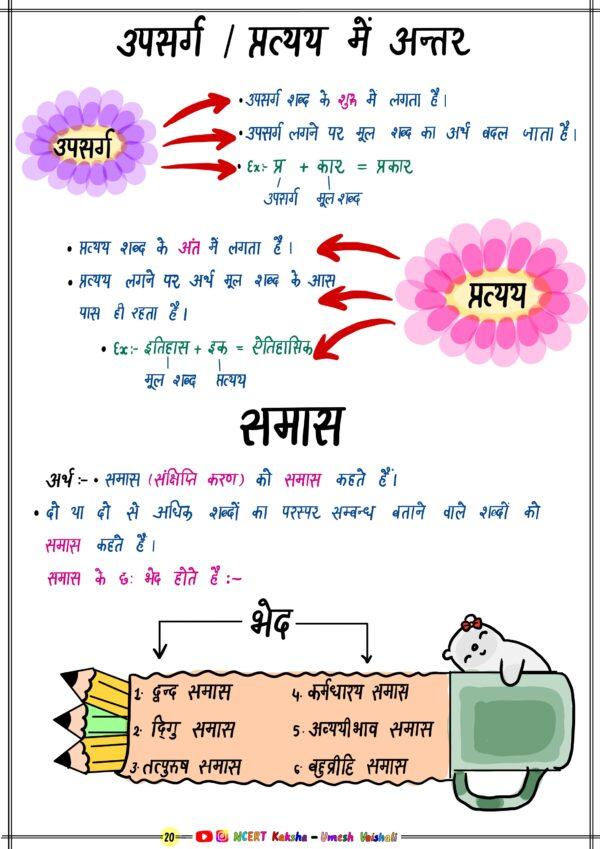 उपसर्ग / प्रत्यय में अन्तर
उपसर्ग
• उपसर्ग शब्द के शुरू में लगता है।
• उपसर्ग लगने पर मूल शब्द का अर्थ बदल जाता है।
• Ex:- प्र + कार = प्रकार
उपसर्ग मूल शब्द
• प्रत्यय शब्द के अंत में लगता है।
• प्रत्यय लगने पर अर्थ मूल शब्द के आस
पास ही रहता है।
प्रत्यय
• Ex:- इतिहास + इक = ऐतिहासिक
मूल शब्द प्रत्यय
समास
अर्थ :- • समास (संक्षिप्ति करण) को समास कहते हैं।
• दो या दो से अधिक शब्दों का परस्पर सम्बन्ध बताने वाले शब्दों को
समास कहते है।
समास के छः भेद होते है :~
भेद
1. द्वन्द समास
2. दिगु समास
3. तत्पुरुष समास
४. कर्मधारय समास
5. अव्ययीभाव समास
६. बहुव्रीहि समास
20 NCERT Kaksha - Umesh Vaishali